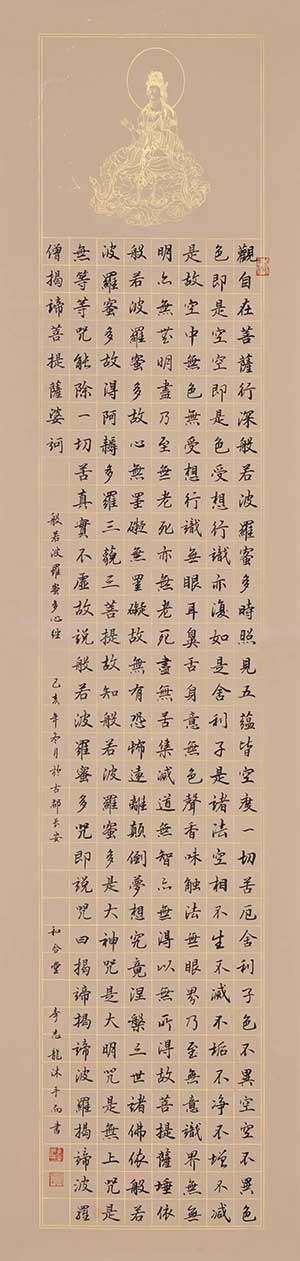 觀自在菩薩行深般若波羅蜜多時照見五蘊皆空度一切苦厄舍利子色不異空空不異色
色即是空空即是色受想行識亦復如是舍利子是諸法空相不生不滅不垢不淨不增不減
是故空中無色無受想行識無眼耳鼻舌身意無色聲香味觸法無眼界乃至無意識界無無
明亦無無明盡乃至無老死亦無老死盡無苦集滅道無智亦無得以無所得故菩提薩埵依
般若波羅蜜多故心無罣礙無罣礙故無有恐怖遠離顛倒夢想究竟涅槃三世諸佛依般若
波羅蜜多故得阿耨多羅三藐三菩提故知般若波羅蜜多是大神咒是大明咒是無上咒是
無等等咒能除一切苦真實不虛故說般若波羅蜜多咒即說咒曰揭諦揭諦波羅揭諦波羅
僧揭諦菩提薩婆訶
般若波羅蜜多心經 己亥年冬月於古都長安 和合堂 志龍沐手書